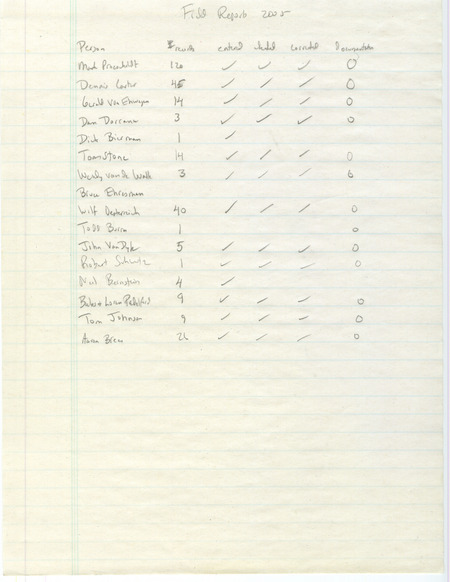 Field Report 2005
Person # records entered checked corrected Documentation
Mark 120 ✓ ✓ ✓ 0
Dennis 45 ✓ ✓ ✓ 0
Gerald Von Ehwegen 14 ✓ ✓ ✓ 0
Dan 3 ✓ ✓ ✓ 0
Dick Bierman 1 ✓
Tom Stone 14 ✓ ✓ ✓ 0
Wendy vande Walle 3 ✓ ✓ ✓ 6
Bruce Ehresman
Wilf 40 ✓ ✓ ✓ 0
Todd 1 0
John Van Dyk 5 ✓ ✓ ✓ 0
Robert Schultz 1 ✓ ✓ ✓ 0
Neil Bernstein 4 ✓
9 ✓ ✓ ✓ 0
Tom Johnson 9 ✓ ✓ ✓ 0
Aaron Brees 26 ✓ ✓ ✓ 0